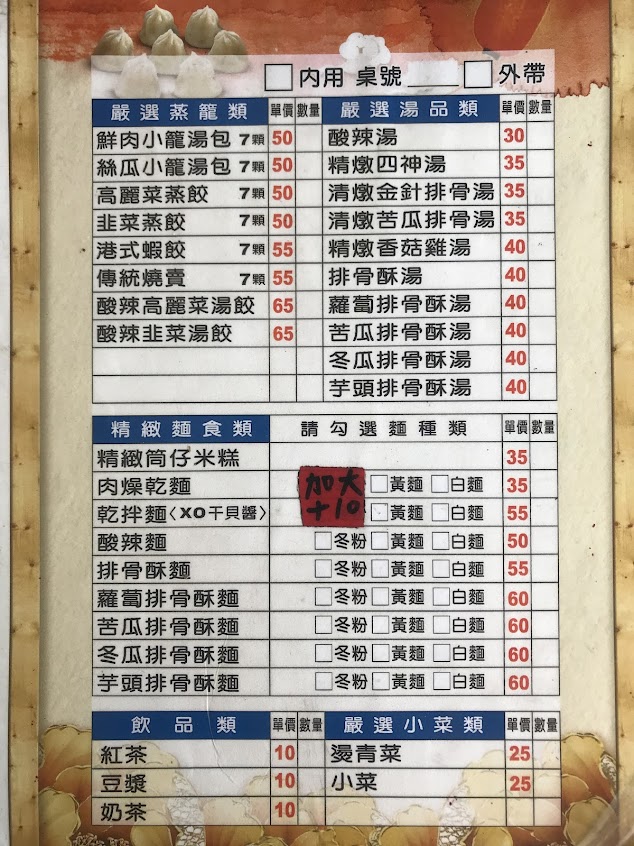 □內用 桌號____ □外帶
嚴選蒸籠類 單價 數量 嚴選湯品類 單價 數量
鮮肉小籠湯包 7顆 50 酸辣湯 30
絲瓜小籠湯包 7顆 50 精燉四神湯 35
高麗菜蒸餃 7顆 50 清燉金針排骨湯 35
韭菜蒸餃 7顆 50 清燉苦瓜排骨湯 35
港式蝦餃 7顆 55 精燉香菇雞湯 40
傳統燒賣 7顆 55 排骨酥湯 40
酸辣高麗菜湯餃 65 蘿蔔排骨酥湯 40
酸辣韭菜湯餃 65 苦瓜排骨酥湯 40
冬瓜排骨酥湯 40
芋頭排骨酥湯 40
精緻麵食類 請勾選麵種類 單價 數量
精緻筒仔米糕 35
肉燥乾麵 加大 □黃麵 □白麵 35
乾拌麵〈XO干貝醬〉 +10 □黃麵 □白麵 55
酸辣麵 □冬粉 □黃麵 □白麵 50
排骨酥麵 □冬粉 □黃麵 □白麵 55
蘿蔔排骨酥麵 □冬粉 □黃麵 □白麵 60
苦瓜排骨酥麵 □冬粉 □黃麵 □白麵 60
冬瓜排骨酥麵 □冬粉 □黃麵 □白麵 60
芋頭排骨酥麵 □冬粉 □黃麵 □白麵 60
飲品類 單價 數量 嚴選小菜類 單價 數量
紅茶 10 燙青菜 25
豆漿 10 小菜 25
奶茶 10